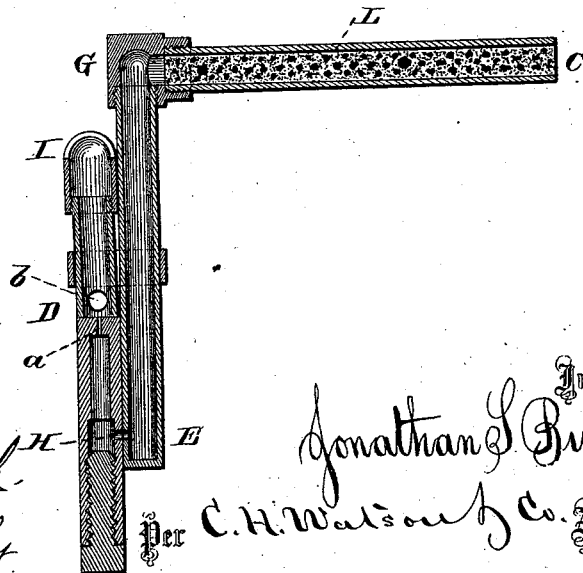 L
G C
I
b
D
a
H E
Jonathan S
Per C. H. Watson & Co.